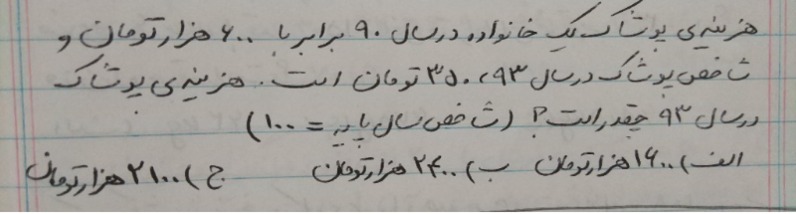 هزینه‌ی پوشاک یک خانواده در سال ۹۰ برابر با ۶۰۰ هزار تومان و
شاخص پوشاک در سال ۹۳، ۳۵۰ تومان است. هزینه‌ی پوشاک
در سال ۹۳ چقدر است؟ (شاخص سال پایه = ۱۰۰)
الف) ۱۶۰۰ هزار تومان ب) ۲۴۰۰ هزار تومان ج) ۲۱۰۰ هزار تومان